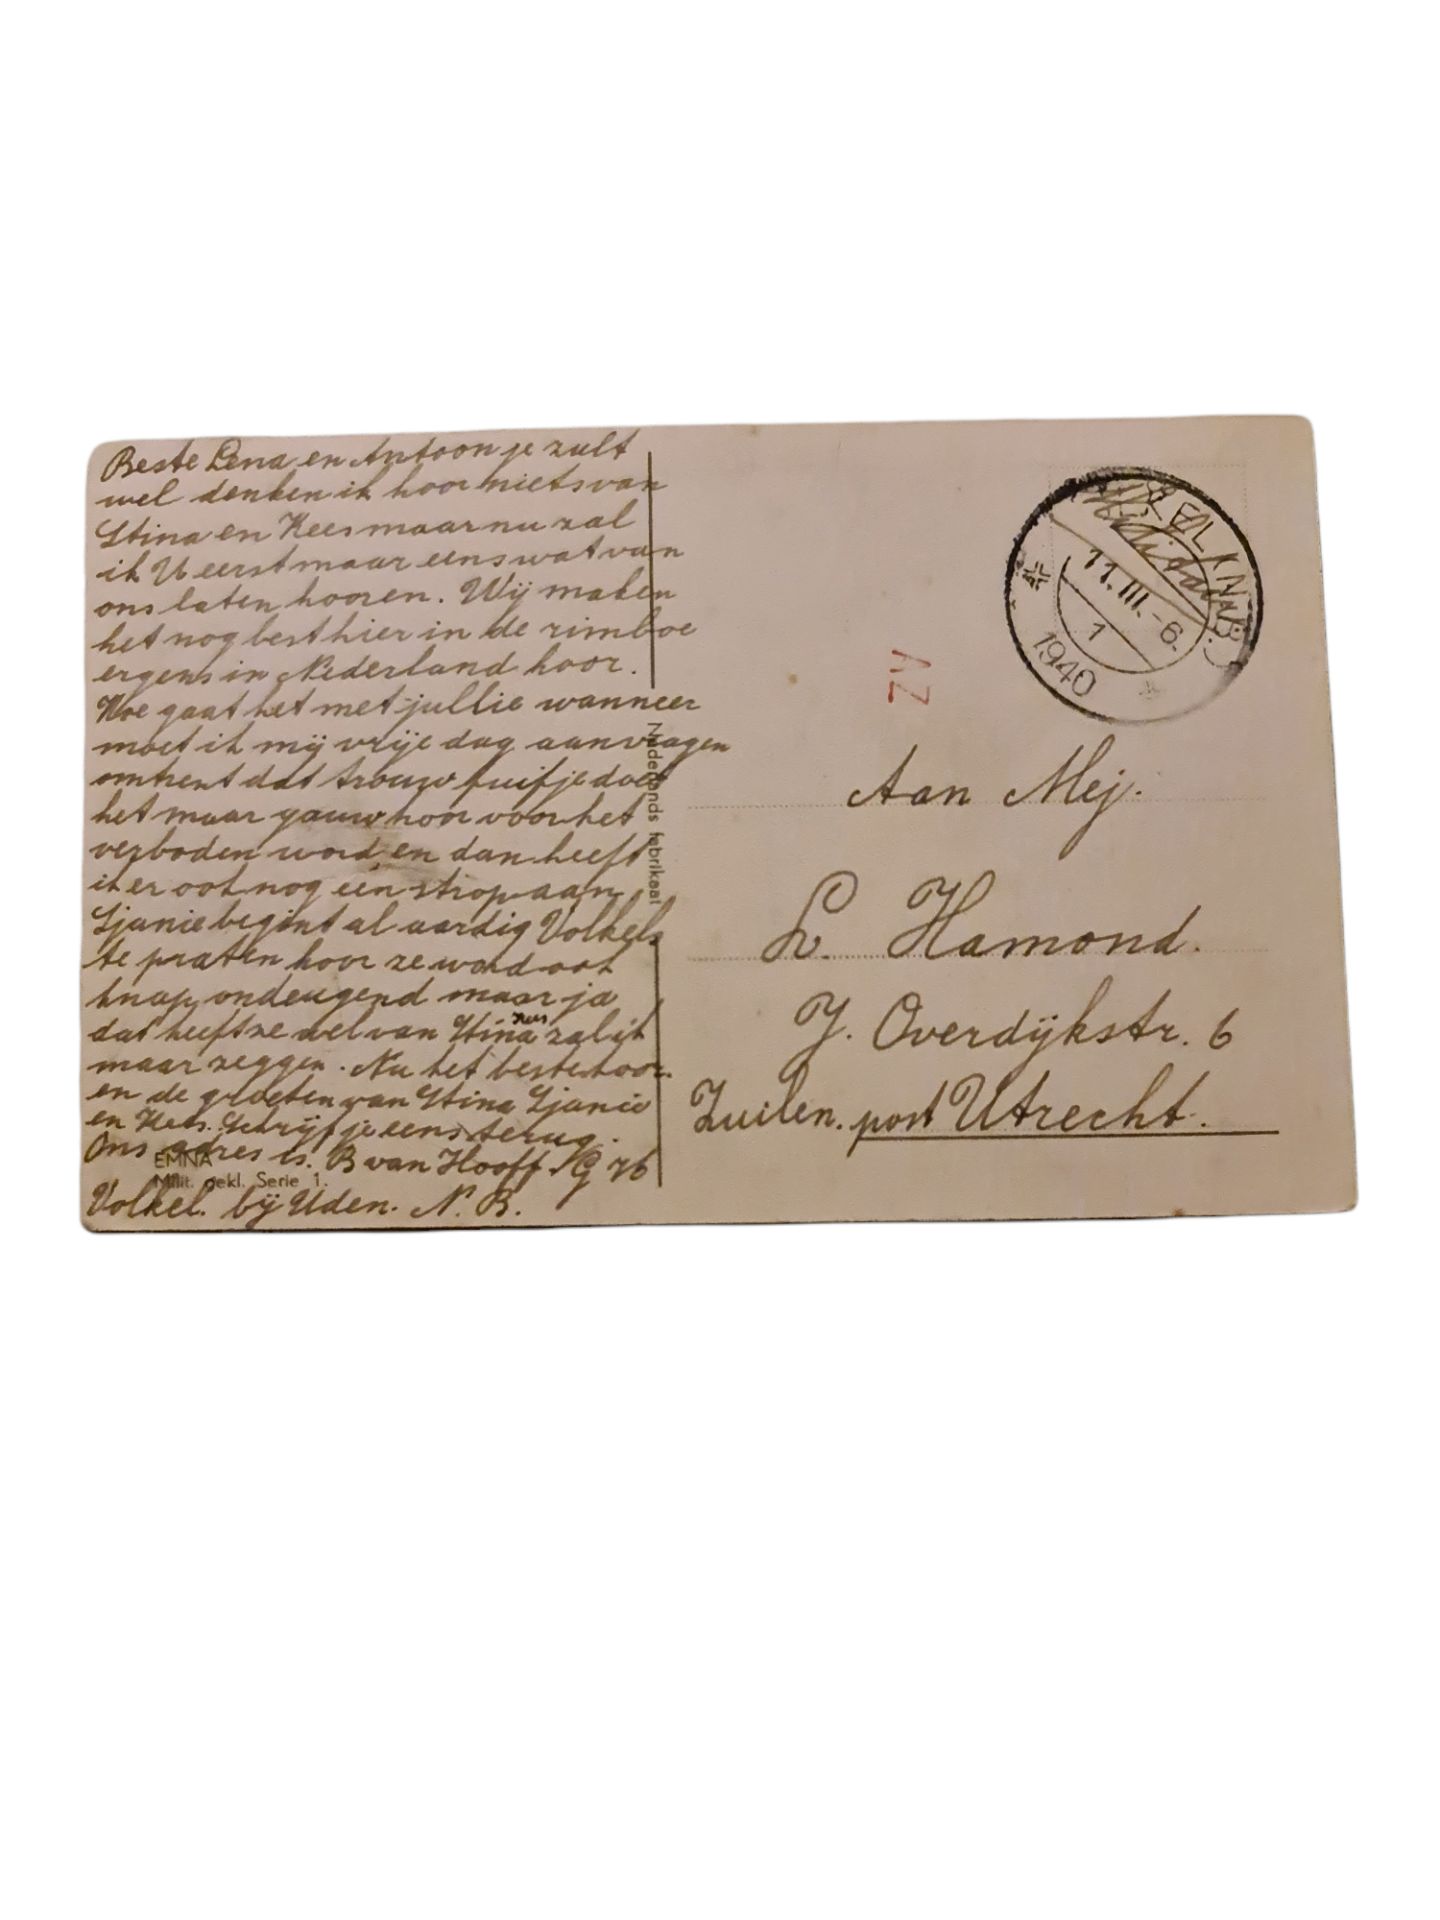 Beste Lena en Antoon je zult
wel denken ik hoor niets van
Stina en Kees maar nu zal
ik U eerst maar eens wat van
ons laten hooren. Wij maken
het nog best hier in de rimboe
ergens in Nederland hoor.
Hoe gaat het met jullie wanneer
moet ik mij vrije dag aanvragen
omtrent dat trouw fuifje doet
het maar gauw hoor voor het
verboden word en dan heeft
ik er ook nog een strop aan
Sjanie begint al aardig Volkels
te praten hoor ze word ook
knap ondeugend maar ja
dat heeft ze wel van Stina zal ik
maar zeggen. Nu het beste hoor.
en de groeten van Stina Sjanie
en Kees. Schrijf je eens terug.
Ons adres is. B van Hooff. G 76
Volkel. bij Uden. N. B.
EMNA
Milit. gekl. Serie 1.
Nederlands fabrikaat
11.III.-6.
1
1940
AZ
Aan Mej.
L. Hamond.
J. Overdijkstr. 6
Zuilen. post Utrecht.